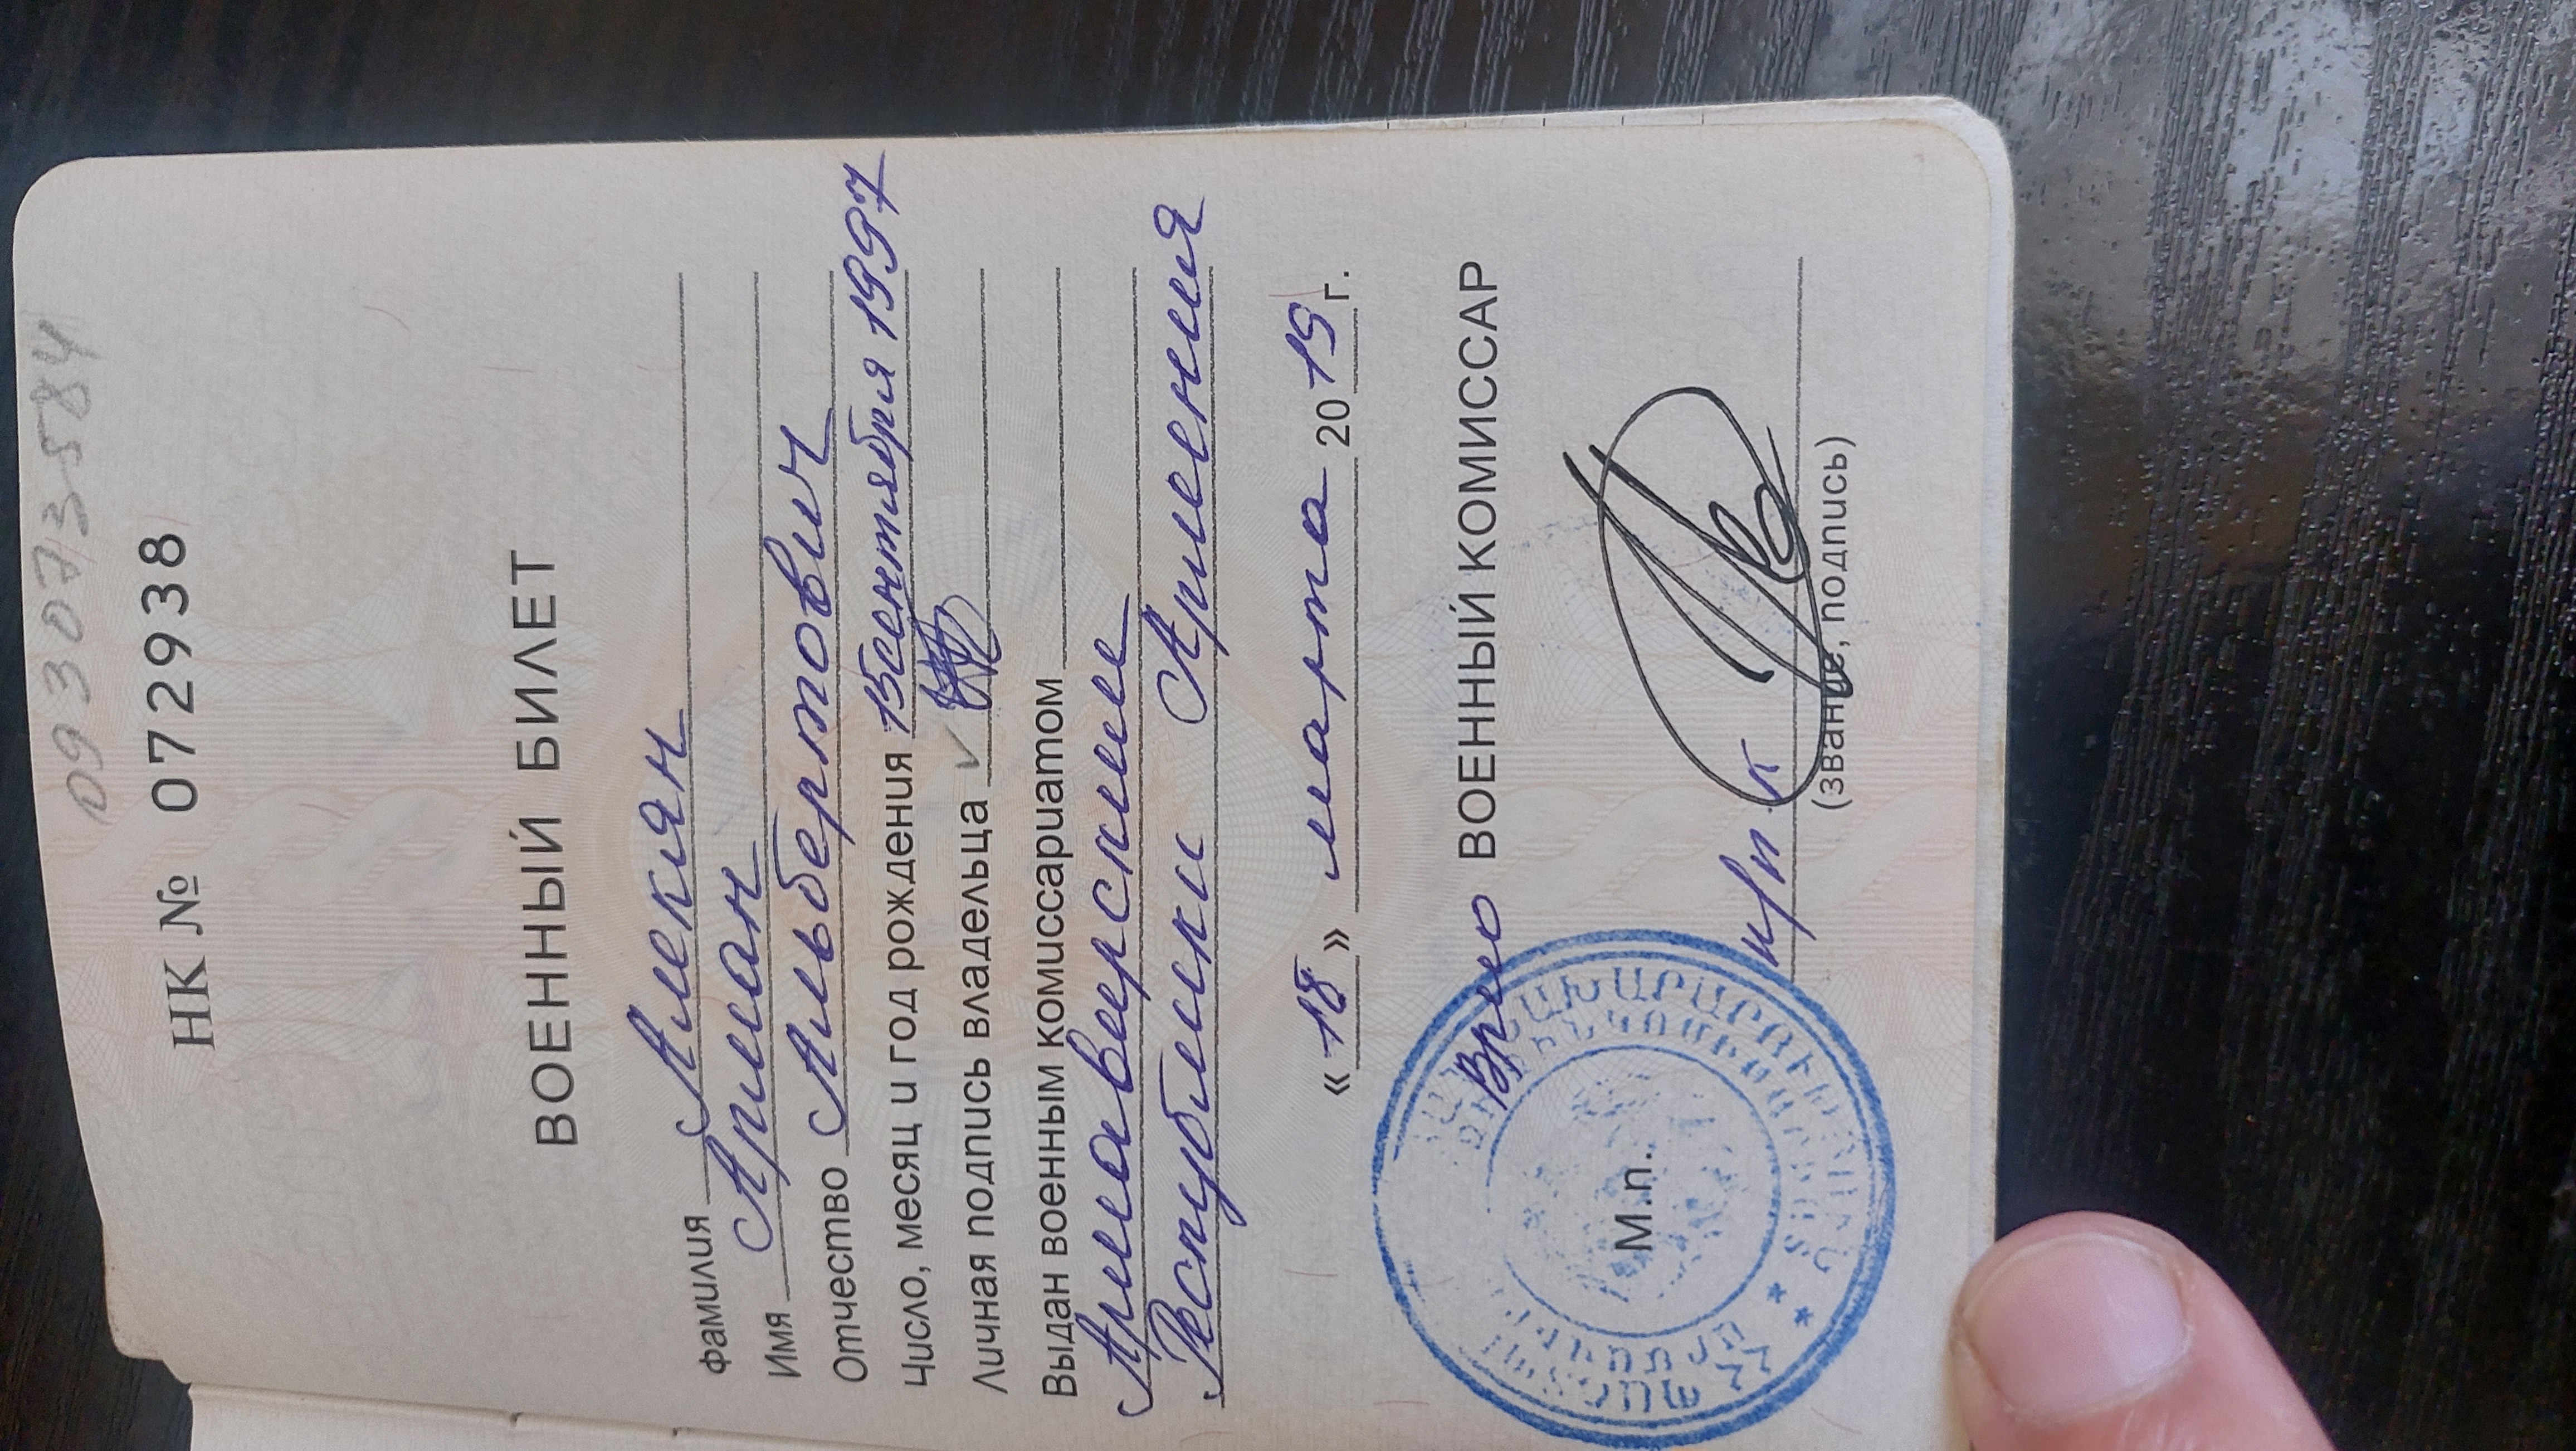 093073584
НК № 072938
ВОЕННЫЙ БИЛЕТ
Фамилия Алекян
Имя Арман
Отчество Альбертович
Число, месяц и год рождения 15 сентября 1997
Личная подпись владельца
Выдан военным комиссариатом
Армавирским
Республики Армения
« 18 » марта 2019 г.
Врио ВОЕННЫЙ КОМИССАР
М.п.
п/п-к
(звание, подпись)